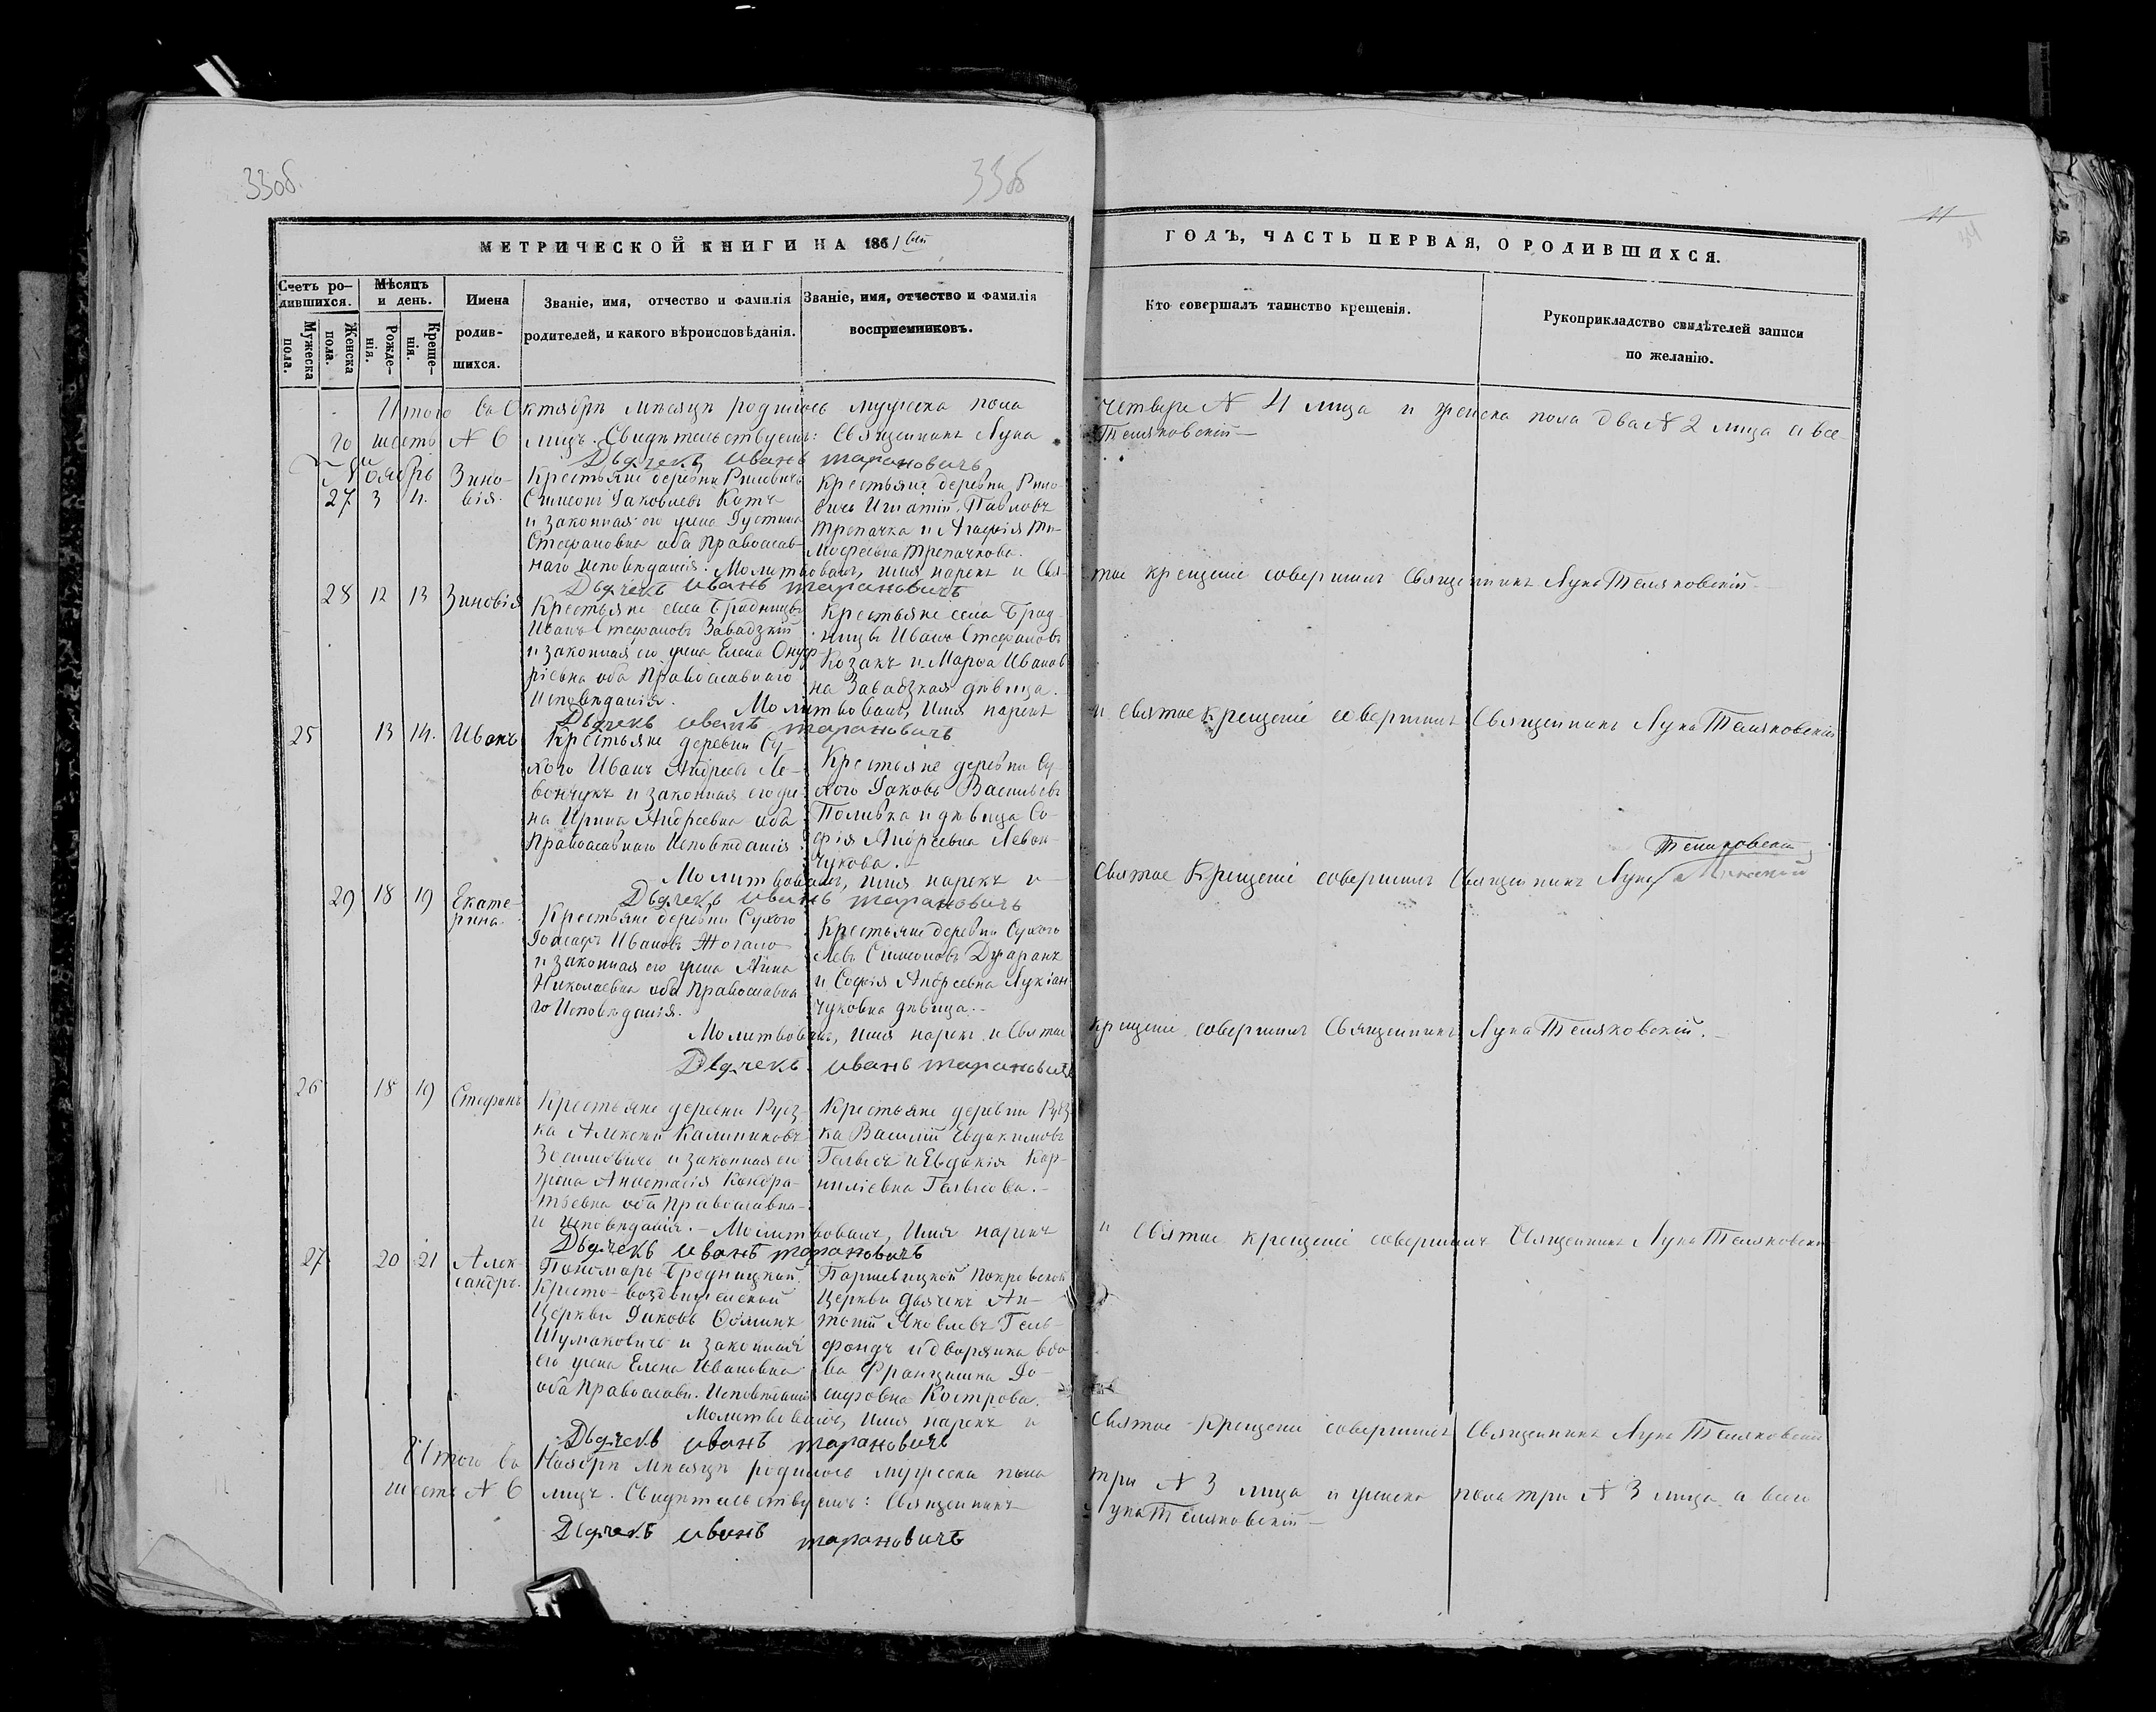 33об.
33об
11
34
МЕТРИЧЕСКОЙ КНИГИ НА 1861 вый
ГОДЪ, ЧАСТЬ ПЕРВАЯ, О РОДИВШИХСЯ.
Счетъ ро-
дившихся.
Мужеска пола.
Женска пола.
Мѣсяцъ
и день.
Рожде-
нія.
Креще-
нія.
Имена
родив-
шихся.
Званіе, имя, отчество и фамилія
родителей, и какого вѣроисповѣданія.
Званіе, имя, отчество и фамилія
восприемниковъ.
Кто совершалъ таинство крещенія.
Рукоприкладство свидѣтелей записи
по желанію.
Итого въ Октябрѣ мѣсяцѣ родилось мужеска пола четыре № 4 лица и женска пола два № 2 лица а все-
го шесть № 6 лицъ. Свидѣтельствуемъ: Священникъ Лука Теляковскій
Дьячекъ иванъ тарановичъ
Ноябрь
27 3 4. Зино-
вія.
Крестьяне деревни
Симеонъ Іаковлевъ
и законная его жена Іустина
Стефановна оба Православ-
наго исповѣданія.
Крестьяне деревни
Игнатій Павловъ
Трепачка и Агафія Ти-
мофеевна Трепачкова.
Молитвовалъ, имя нарекъ и Свя-
тое крещеніе совершилъ Священникъ Лука Теляковскій
Дьячекъ иванъ тарановичъ
28 12 13 Зиновія
Крестьяне села Бродницы
Иванъ Стефановъ Завадзкій
и законная его жена Елена Онуф-
ріевна оба Православнаго
Исповѣданія.
Крестьяне села Брод-
ницы Иванъ Стефановъ
Козакъ и Марѳа Иванов-
на Завадзкая дѣвица.
Молитвовалъ, Имя нарекъ
и Святое Крещеніе совершилъ Священникъ Лука Теляковскій
Дьячекъ иванъ тарановичъ
25 13 14. Иванъ
Крестьяне деревни Су-
хого Иванъ Андреевъ Ле-
вончукъ и законная его же-
на Ирина Андреевна оба
Православнаго Исповѣданія.
Крестьяне деревни Су-
хого Іаковъ Васильевъ
Поливка и дѣвица Со-
фія Андреевна Левон-
чукова.
Молитвовалъ, имя нарекъ и
Святое Крещеніе совершилъ Священникъ Лука
Теляковскій
Дьячекъ иванъ тарановичъ
29 18 19 Екате-
рина.
Крестьяне деревни Сухого
Іоасафъ Ивановъ
и законная его жена Анна
Николаевна оба Православна-
го Исповѣданія.
Крестьяне деревни Сухого
Левъ Симеоновъ
и Софія Андреевна Лукіан-
чуковна дѣвица.
Молитвовалъ, имя нарекъ и Святое
Крещеніе совершилъ Священникъ Лука Теляковскій.
Дьячекъ иванъ тарановичъ
26 18 19 Стефанъ
Крестьяне деревни
ка Алексій Калиниковъ
и законная его
жена Анастасія Кондра-
тьевна оба Православна-
го исповѣданія.
Крестьяне деревни
ка Василій Евдокимовъ
и Евдокія Кор-
ниліевна
Молитвовалъ, Имя нарекъ
и Святое крещеніе совершилъ Священникъ Лука Теляковскій
Дьячекъ иванъ тарановичъ
27 20 21 Алек-
сандръ.
Пономарь Бродницкой
Кресто-воздвиженской
Церкви Іаковъ Ѳоминъ
Шумаковичъ и законная
его жена Елена Ивановна
оба Православн. Исповѣданія
Паршевицкой Покровской
Церкви дьячекъ Ан-
тоній Яковлевъ
и дворянка вдо-
ва Францишка Іо-
сифовна Кострова.
Молитвовалъ, имя нарекъ и
Святое Крещеніе совершилъ Священникъ Лука Теляковскій
Дьячекъ иванъ тарановичъ
Итого въ Ноябрѣ мѣсяцѣ родилось мужеска пола три № 3 лица и женска пола три № 3 лица, а всего
шесть № 6 лицъ. Свидѣтельствуемъ: Священникъ Лука Теляковскій
Дьячекъ иванъ тарановичъ